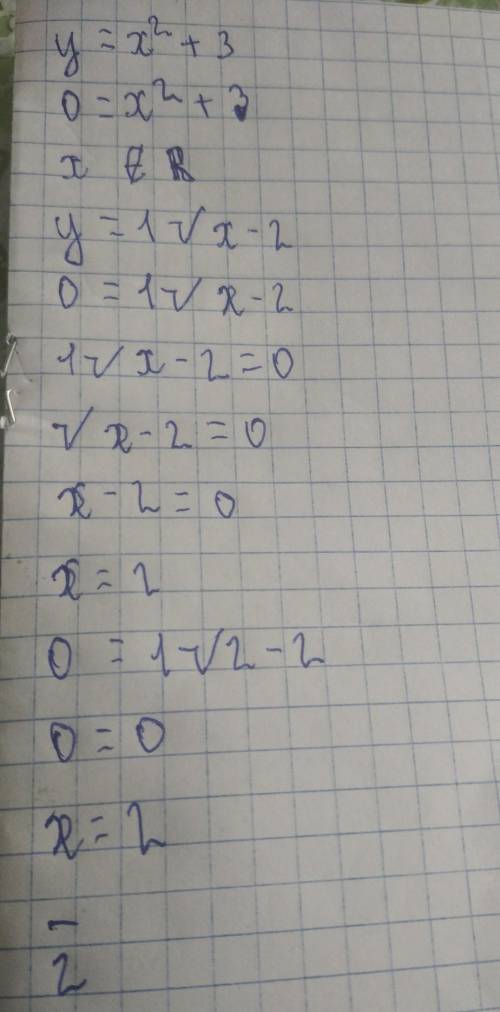 y = x² + 3
0 = x² + 3
x ∉ R
y = 1√x - 2
0 = 1√x - 2
1√x - 2 = 0
√x - 2 = 0
x - 2 = 0
x = 2
0 = 1√2 - 2
0 = 0
x = 2
—
2